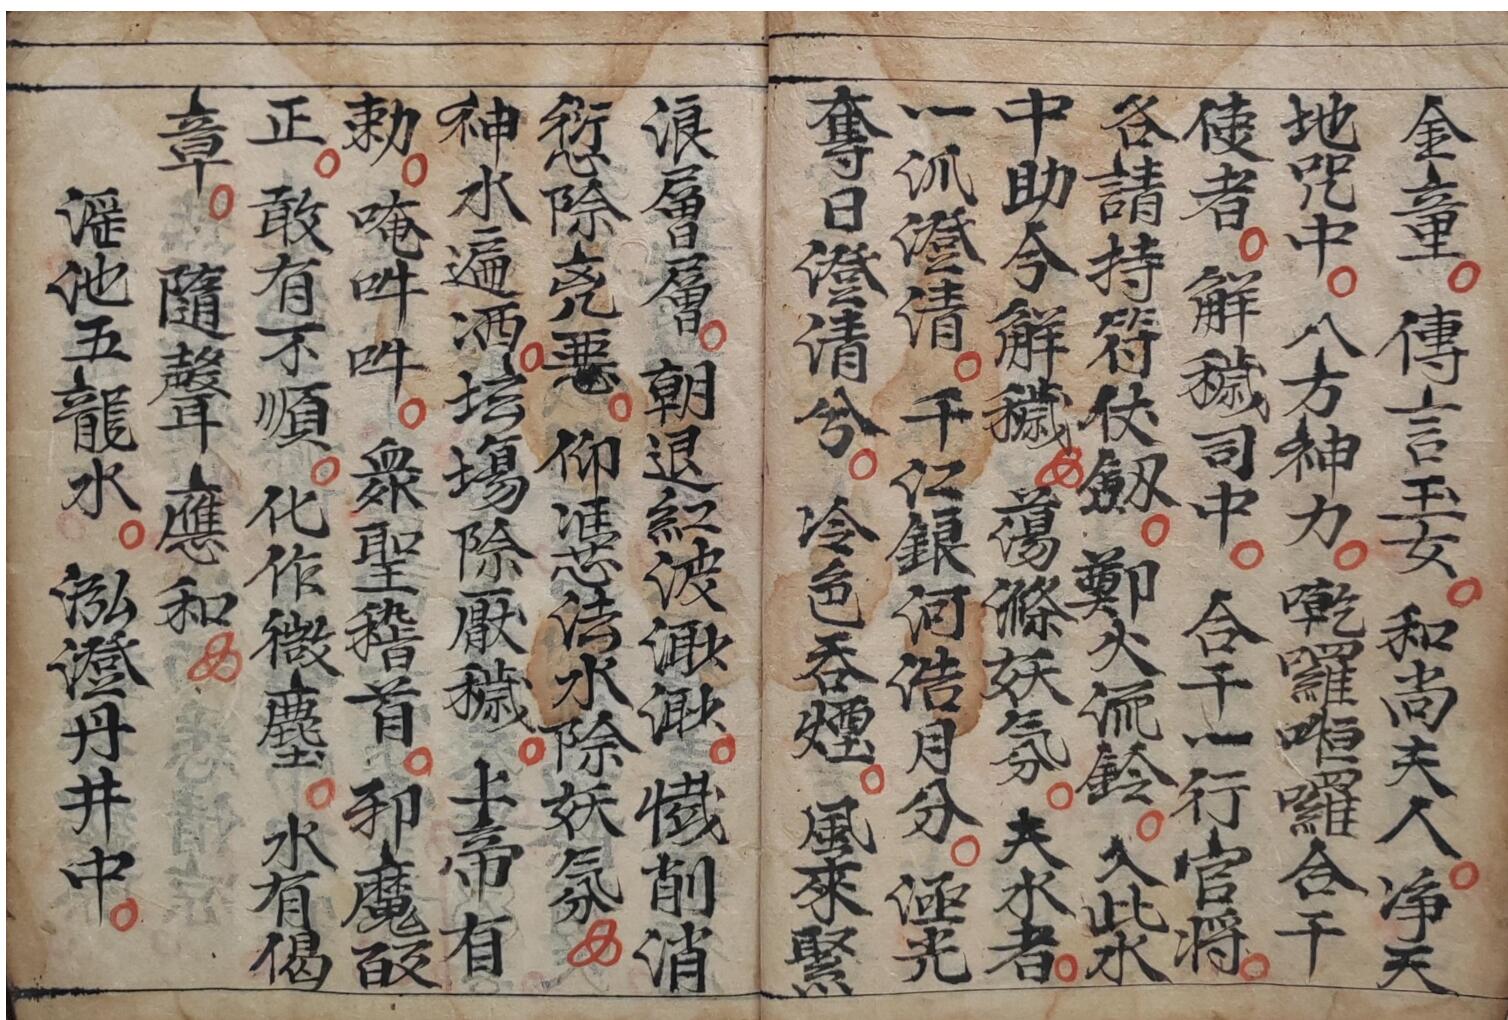 金童。傳言玉女。和尚夫人。净天
地咒中。八方神力。乾囉喧囉合干
使者。解穢司中。合干一行官将。
各請持符伏劔。鄭火流鈴。入此水
中助今解穢。蕩滌妖氛。夫水者。
一派澄清。千仁銀河浩月分。極光
奪日澄清兮。冷色吞煙。風來緊
浪層層。朝退紅波潄潄。懺削消
愆除兇惡。仰憑法水除妖氛。
神水遍洒。坛場除厭穢。上帝有
勅。唵吽吽。衆聖稽首。邪魔皈
正。敢有不順。化作微塵。水有偈
章。隨聲應和
滛池五龍水。泓澄丹井中。